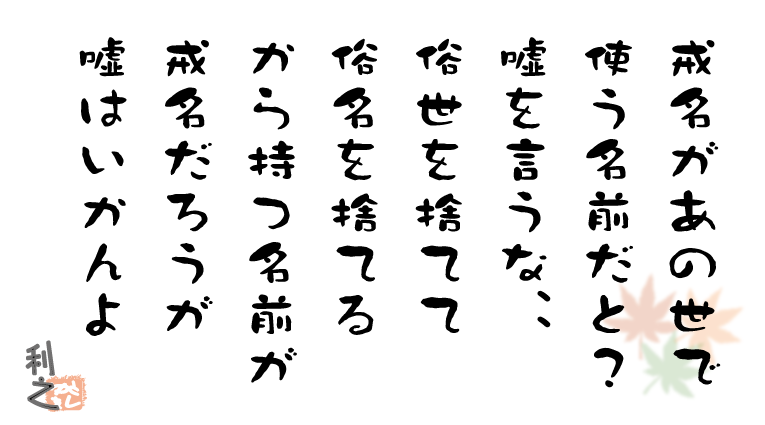 戒名があの世で
使う名前だと?
嘘を言うな、、
俗世を捨てて
俗名を捨てる
から持つ名前が
戒名だろうが
嘘はいかんよ
利之